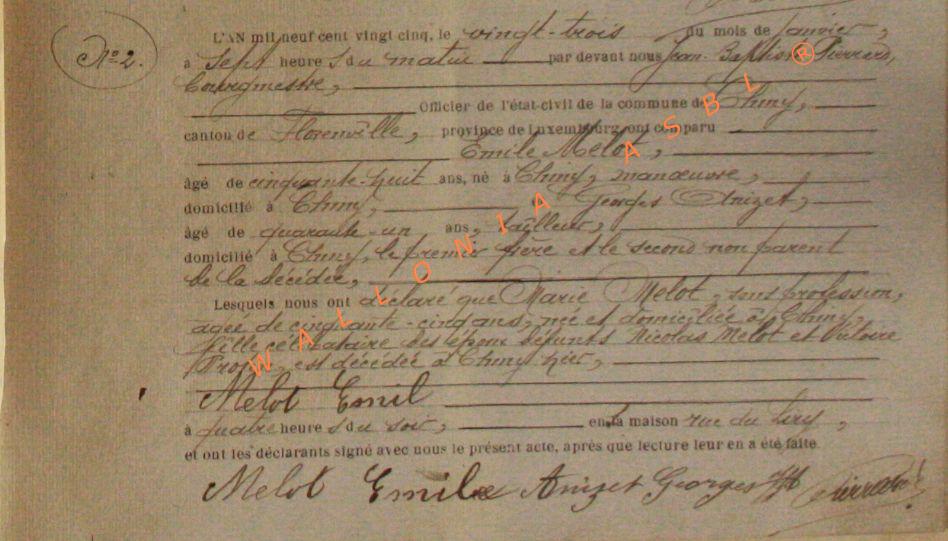 L'AN mil neuf cent vingt cinq, le vingt-trois du mois de janvier,
N° 2.
à sept heures du matin par devant nous Jean-Baptiste Pierrard,
Bourgmestre,
Officier de l'état-civil de la commune de Chiny,
canton de Florenville, province de Luxembourg, ont comparu
Emile Melot,
âgé de cinquante-huit ans, né à Chiny, manœuvre,
domicilié à Chiny, Georges Anizet,
âgé de quarante-un ans, tailleur,
domicilié à Chiny, le premier frère et le second non parent
de la décédée,
Lesquels nous ont déclaré que Marie Melot, sans profession,
agée de cinquante-cinq ans, née et domiciliée à Chiny,
fille célibataire des époux défunts Nicolas Melot et Victoire
est décédée à Chiny hier,
Melot Emil
à quatre heures du soir, en la maison rue du
et ont les déclarants signé avec nous le présent acte, après que lecture leur en a été faite.
Melot Emile Anizet Georges Pierrard
WALLONIA ASBL ®